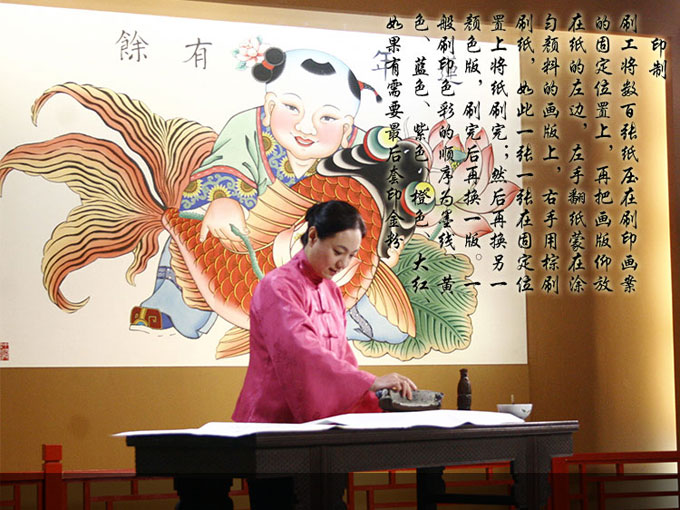 印制
刷工将数百张纸压在刷印画案
的固定位置上，再把画版仰放
在纸的左边，左手翻纸蒙在涂
匀颜料的画版上，右手用棕刷
刷纸，如此一张一张在固定位
置上将纸刷完；然后再换另一
颜色版，刷完后再换一版。一
般刷印色彩的顺序为墨线、黄
色、蓝色、紫色、橙色、大红、
如果有需要最后套印金粉
年有餘